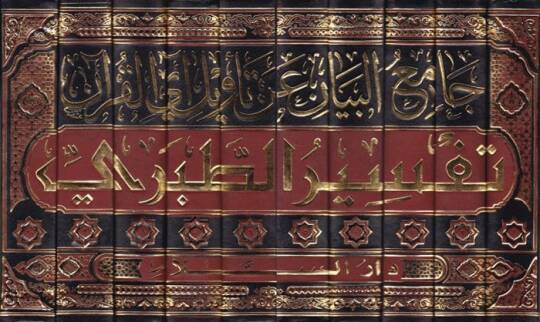 جامع البيان عن تأويل آي القرآن
تفسير الطبري
دار السلام